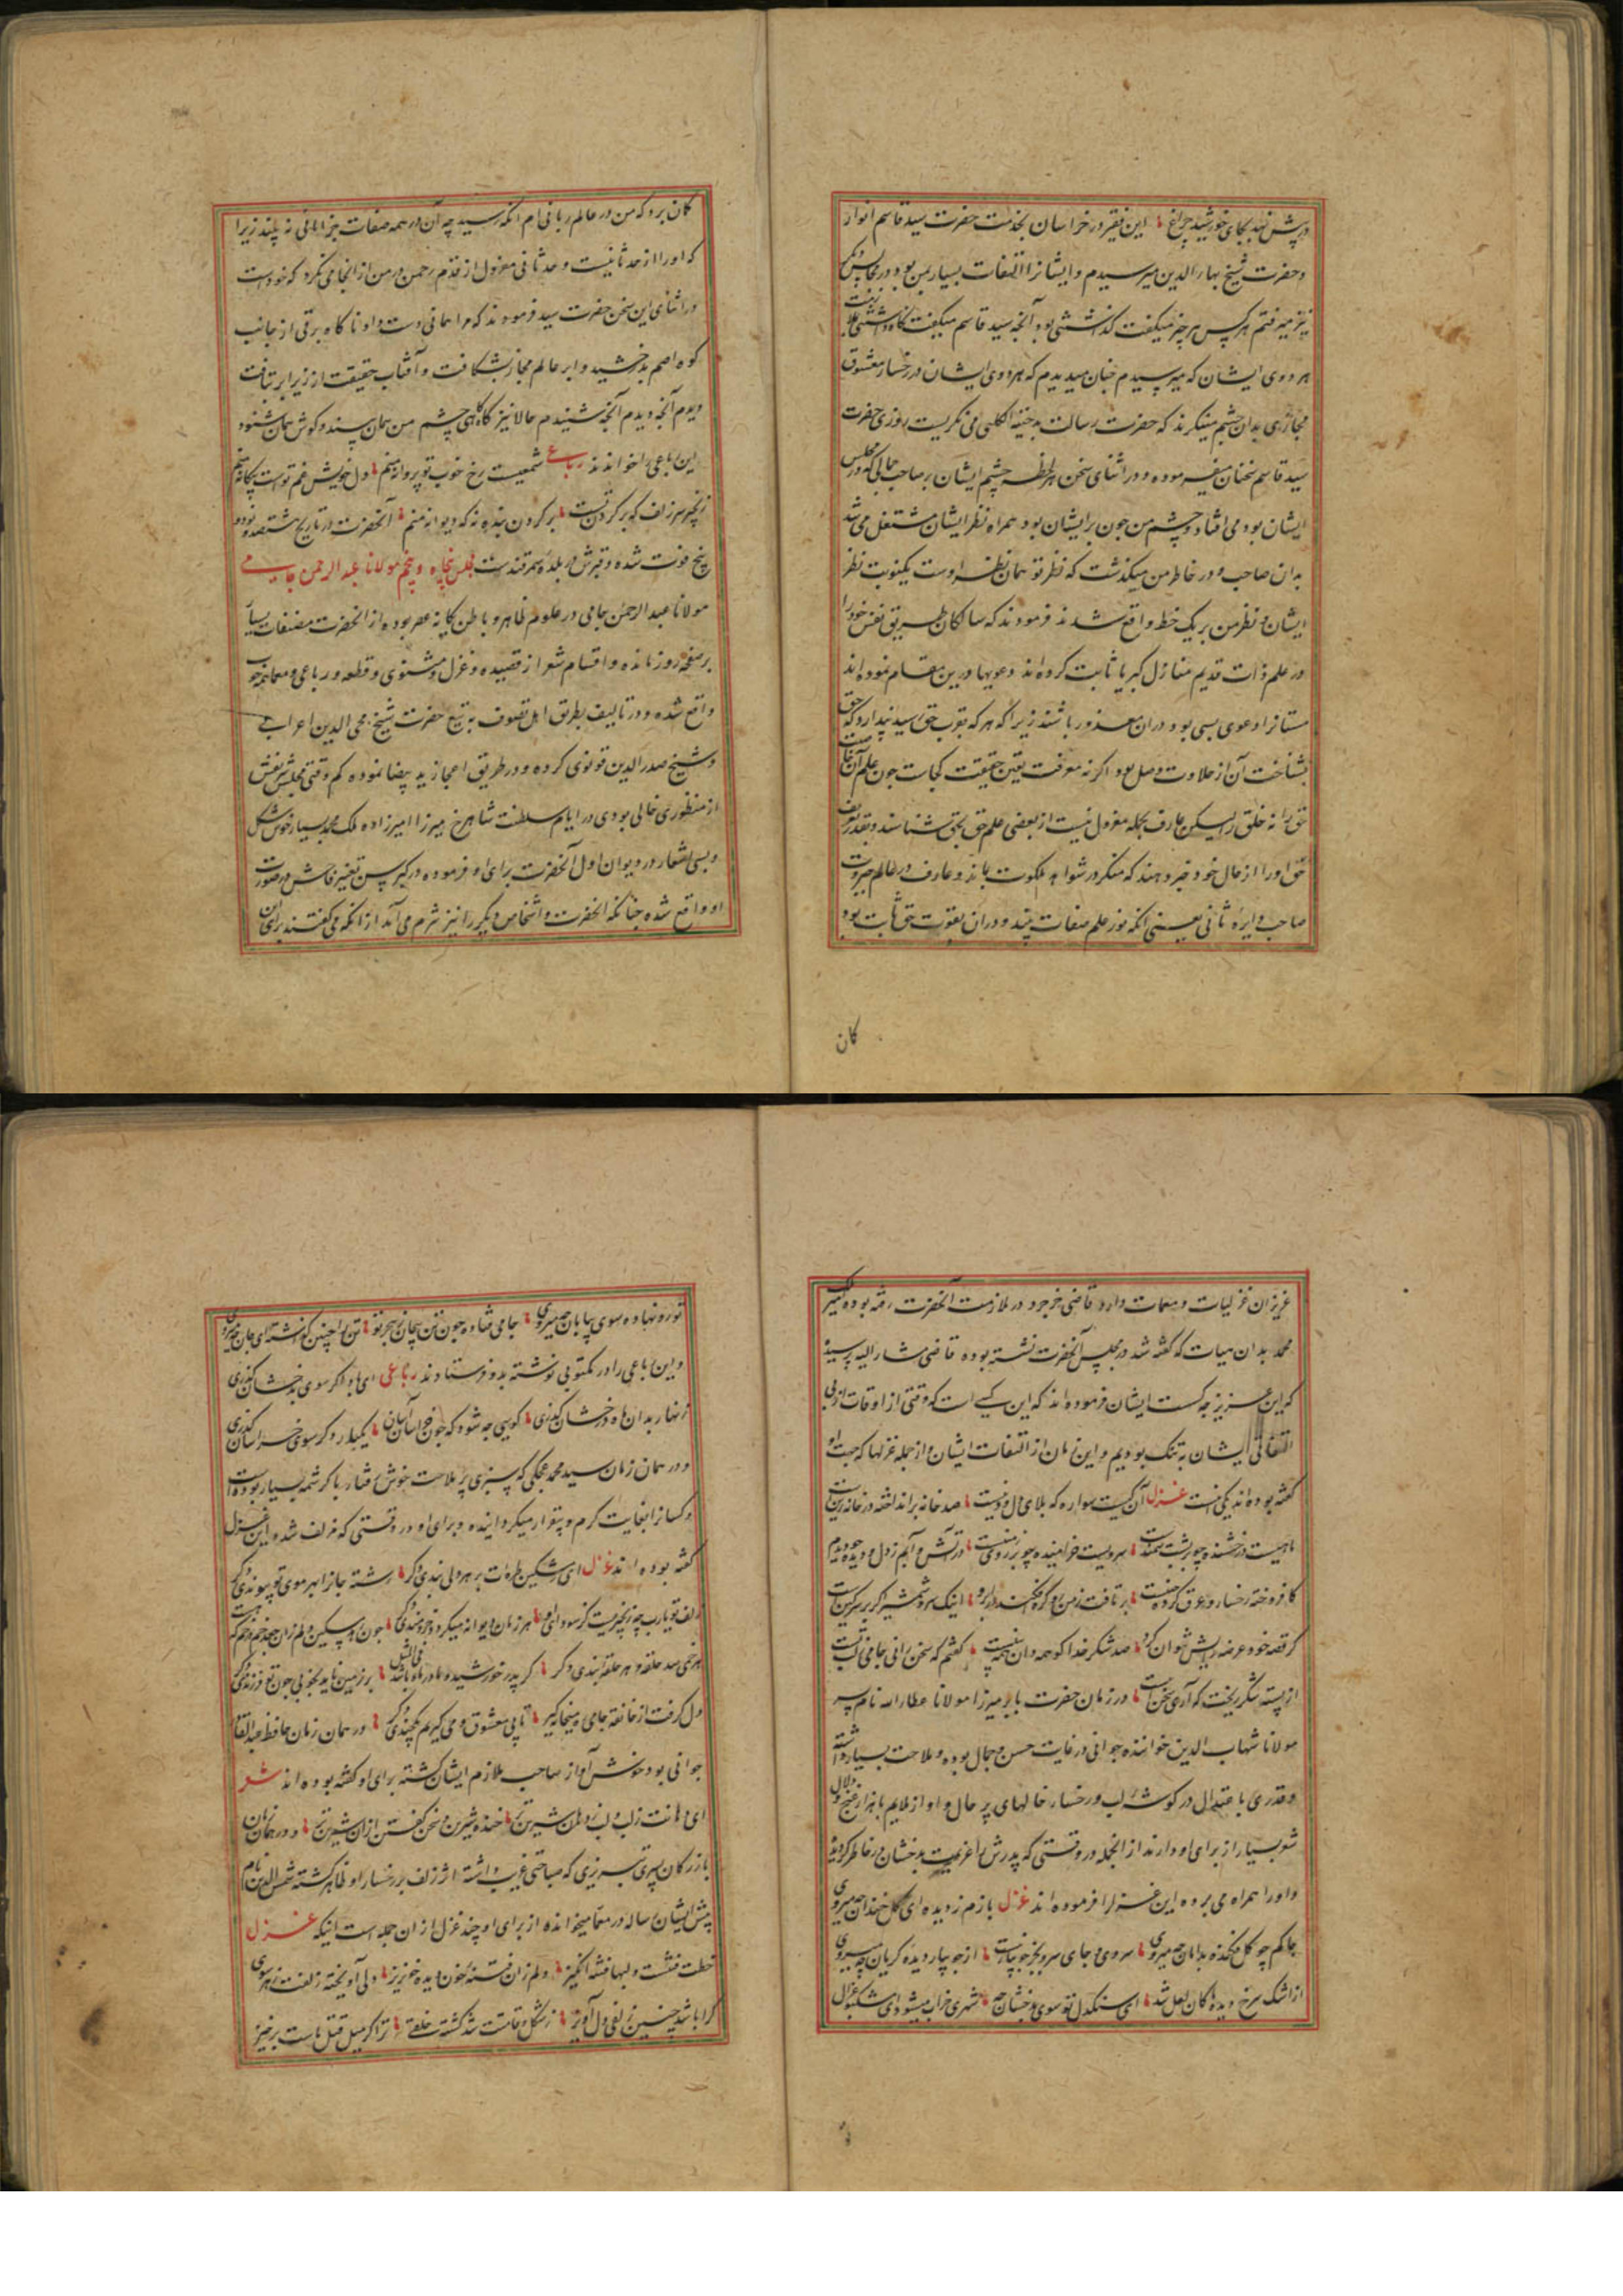 در پیش نهد بجای خورشید چراغ این فقیر در خراسان بخدمت حضرت سید قاسم انوار
و حضرت شیخ بهاء الدین میرسیدم و ایشانرا التفات بسیار بمن بود و در مجالس دیگر
نیز میرفتم هر کس هر چیز میگفت گذاشتنی بود آنچه سید قاسم میگفت نگاه داشتنی
هر دوی ایشان که میرسیدم چنان میدیدم که هر دوی ایشان در رخسار معشوق
مجازی بدان چشم مینگرند که حضرت رسالت بدحیة الکلبی می نگریست روزی حضرت
سید قاسم سخنان میفرموده و در اثنای سخن هر لحظه چشم ایشان بر صاحب جمالی که در مجلس
ایشان بود می افتاد و چشم من چون بر ایشان بود همراه نظر ایشان مشتغل می شد
بدان صاحب و در خاطر من میگذشت که نظر تو همان نظر اوست یکنوبت نظر
ایشان و نظر من بر یک خط واقع شدند فرمودند که سالکان طریق نفس خود را
در علم ذات قدیم منازل کبریا ثابت کرده اند و دعویها درین مقام نموده اند
مستانرا دعوی بسی بود دران معذور باشند زیرا که هر که بقرب حق رسید پندارد که حق
بشناخت آن از حلاوت وصل بود اگر نه معرفت بقین حقیقت کجاست چون علم آن
حق را نه خلق را لیکن عارف بجمله معزول نیست از بعضی علم حق بحق بشناسند و بقدر
حق او را از حال خود خبر دهند که منکر در شواهد ملکوت بماند و عارف در عالم جبروت
صاحب دایره ثانی یعنی آنکه نور علم صفات بیند و دران بقوت حق ثابت بود
کان
کان برد که من در عالم ربانی ام آنکه رسید چه آن در همه صفات جز امانی نه بیند زیرا
که او را از حد ثانیست و حد ثانی معزول از قدم رحمن و من از انجا می نگرد که خود است
در اثنای این سخن حضرت سید فرمودند که مرا همانی دست داد و ناگاه برقی از جانب
کوه اصم بدرخشید و ابر عالم مجاز بشکافت و آفتاب حقیقت از زیر ابر بتافت
دیدم آنچه دیدم آنچه شنیدم حالا نیز گاه گاهی چشم من همان بیند و گوش همان شنود
این رباعی را خواندند رباعی شمعیست رخ خوب تو پروانه منم دل خویش غم تو است بیگانه منم
زنجیر سر زلف که بر گردن تست بر گردن بنده نه که دیوانه منم آنحضرت در تاریخ هشتصد و نود و
پنج فوت شده و قبرش در بلده سمرقندست مجلس پنجاه و پنجم مولانا عبد الرحمن جامی
مولانا عبد الرحمن جامی در علوم ظاهر و باطن یگانه عصر بوده از آنحضرت مصنفات بسیار
بر صفحه روز مانده و اقسام شعر از قصیده و غزل و مثنوی و قطعه و رباعی و معما همه خوب
واقع شده و در تالیف بطریق اهل تصوف به تتبع حضرت شیخ محی الدین اعرابی
و شیخ صدر الدین قونوی کرده و در طریق اعجاز ید بیضا نموده کم وقتی مجلس شریفش
از منظوری خالی بودی در ایام سلطنت شاهرخ میرزا امیرزاده ملک محمد بسیار خوش شکل
و بسی اشعار در دیوان اول آنحضرت برای او فرموده در کبر سن تغییر فاحش در صورت
او واقع شده چنانکه آنحضرت و اشخاص دیگر را نیز شرم می آمد از آنکه می گفتند برای این
عزیزان غزلیات و معمیات وارد قاضی خرجرد در ملازمت آنحضرت رفته بوده امیر ملک
محمد بدان هیات که گفته شد در مجلس آنحضرت نشسته بوده قاضی مشار الیه پرسیده
که این عزیز چه کست ایشان فرموده اند که این کسی است که وقتی از اوقات از بی
التفاتی ایشان به تنگ بودیم و این زمان از التفات ایشان و از جمله غزلها که جهت او
گفته بوده اند یکی اینست غزل آن کیست سواره که بلای دل و دینست صد خانه برانداخته در خانه زینست
ماهیست درخشنده چو بر پشت سمندست سرویست خرامنده چو بر روی زمینست در آتش و آبم ز دل و دیده چو دیدم
کافروخته رخسار و عرق کرده جبینست بر تافت ز من رو گره افکند در ابرو اینک سر و شمشیر گر بر سر کین است
گر قصه خود عرضه بریش نتوان کرد صد شکر خدا کو همه دان همه بینست گفتم که سخن رانی جامی ز لب تست
از پسته شکر ریخت که آری سخن اینست در زمان حضرت بابر میرزا مولانا عطاء الله نام پسر
مولانا شهاب الدین خواننده جوانی در غایت حسن و جمال بوده و ملاحت بسیار داشته
و قدری باعتدال در گوشه لب و رخسار خالهای پر حال و آواز ملایم با هزار غنج و دلال
شعر بسیار از برای او دارند از انجمله در وقتی که پدرش را عزیمت بدخشان در خاطر گردیده
و او را همراه می برده این غزل را فرموده اند غزل بازم ز دیده ای گل خندان چه میروی
چاکم چو گل فکنده بدامان چه میروی سروی و جای سرو بجز جویبار نیست از جویبار دیده گریان چه میروی
از اشک سرخ دیده ما کان لعل شد ای سنگدل تو سوی بدخشان چه شهری خراب میشود ای مشکبو غزال
تو رو نهاده سوی بیابان چه میروی جامی فتاده چون تن بیجان ز هجر تو تن را چنین گذاشته ای جان چه میروی
و این رباعی را در مکتوبی نوشته بدو فرستادند رباعی ای باد اگر سوی بدخشان گذری
زنهار بدان ماه درخشان گذری گویی چه شود که چون خراسان یکبار دگر سوی خراسان گذری
و در همان زمان سید محمد عجلکی که پسری پر ملاحت خوش رفتار با کرشمه بسیار بوده است
و کسانرا بغایت گرم و بیقرار میگردانیده و برای او در وقتی که مزلف شده این غزل
گفته بوده اند غزل ای مشکین طره ات بر هر دلی بندی دگر رشته جانرا بهر موی تو پیوندی دگر
زلف تو یارب چه زنجیریست کز سودای او هر زمان دیوانه میگردد خردمندی دگر چون زید مسکین دلم زان جعد خم در خم که
هر خمی صد حلقه و هر حلقه بندی دگر گر پدر خورشید و مادر ماه باشد فی المثل بر زمین ناید بخوبی چون تو فرزندی دگر
دل گرفت از خانقه جامی ره میخانه گیر تا پی معشوق و می گیریم یکچندی دگر در همان زمان حافظ عبد القادر
جوانی بود خوش آواز صاحب ملازم ایشان گشته برای او گفته بوده اند شعر
ای دهانت ز لب و لب ز دهان شیرین تر خنده شیرین و سخن گفتن ازان شیرین تر و در همان زمان
بازرگان پسری تبریزی که صباحتی غریب داشته اثر زلف بر رخسار او ظاهر گشته شمس الدین نام
پیش ایشان رساله در معما میخوانده از برای او چند غزل از ان جمله است اینکه غزل
خطت فتنست و لبها فتنه انگیز دلم زان فتنه خون و دیده خونریز دلی آویخته زلفت ز هر سوی
کرا باشد چنین زلفی دل آویز ز شکل قامتت شد کشته خلقی ترا گر میل قتل ماست برخیز